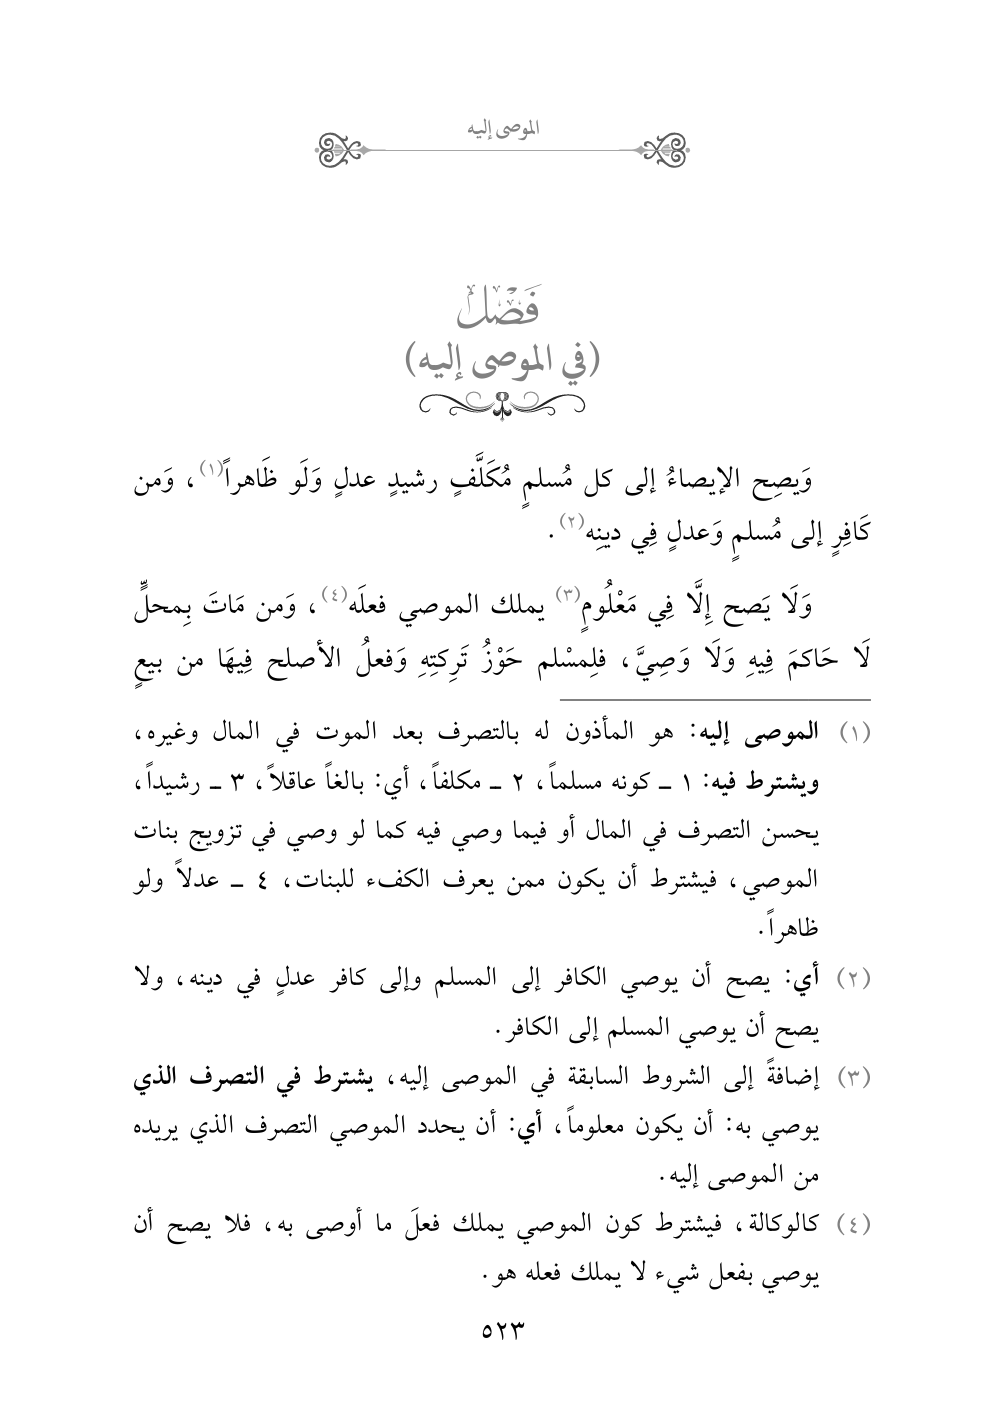 الموصى إليه
فَصْلٌ
(في الموصى إليه)
وَيصِح الإيصاءُ إلى كل مُسلمٍ مُكَلَّفٍ رشيدٍ عدلٍ وَلَو ظَاهراً(١)، وَمن
كَافِرٍ إلى مُسلمٍ وَعدلٍ فِي دينِه(٢).
وَلَا يَصح إِلَّا فِي مَعْلُومٍ(٣) يملك الموصي فعلَه(٤)، وَمن مَاتَ بِمحلٍّ
لَا حَاكمَ فِيهِ وَلَا وَصِيَّ، فلِمسْلم حَوْزُ تَرِكتِهِ وَفعلُ الأصلح فِيهَا من بيعٍ
(١) الموصى إليه: هو المأذون له بالتصرف بعد الموت في المال وغيره،
ويشترط فيه: ١ ـ كونه مسلماً، ٢ ـ مكلفاً، أي: بالغاً عاقلاً، ٣ ـ رشيداً،
يحسن التصرف في المال أو فيما وصي فيه كما لو وصي في تزويج بنات
الموصي، فيشترط أن يكون ممن يعرف الكفء للبنات، ٤ ـ عدلاً ولو
ظاهراً.
(٢) أي: يصح أن يوصي الكافر إلى المسلم وإلى كافر عدلٍ في دينه، ولا
يصح أن يوصي المسلم إلى الكافر.
(٣) إضافةً إلى الشروط السابقة في الموصى إليه، يشترط في التصرف الذي
يوصي به: أن يكون معلوماً، أي: أن يحدد الموصي التصرف الذي يريده
من الموصى إليه.
(٤) كالوكالة، فيشترط كون الموصي يملك فعلَ ما أوصى به، فلا يصح أن
يوصي بفعل شيء لا يملك فعله هو.
٥٢٣